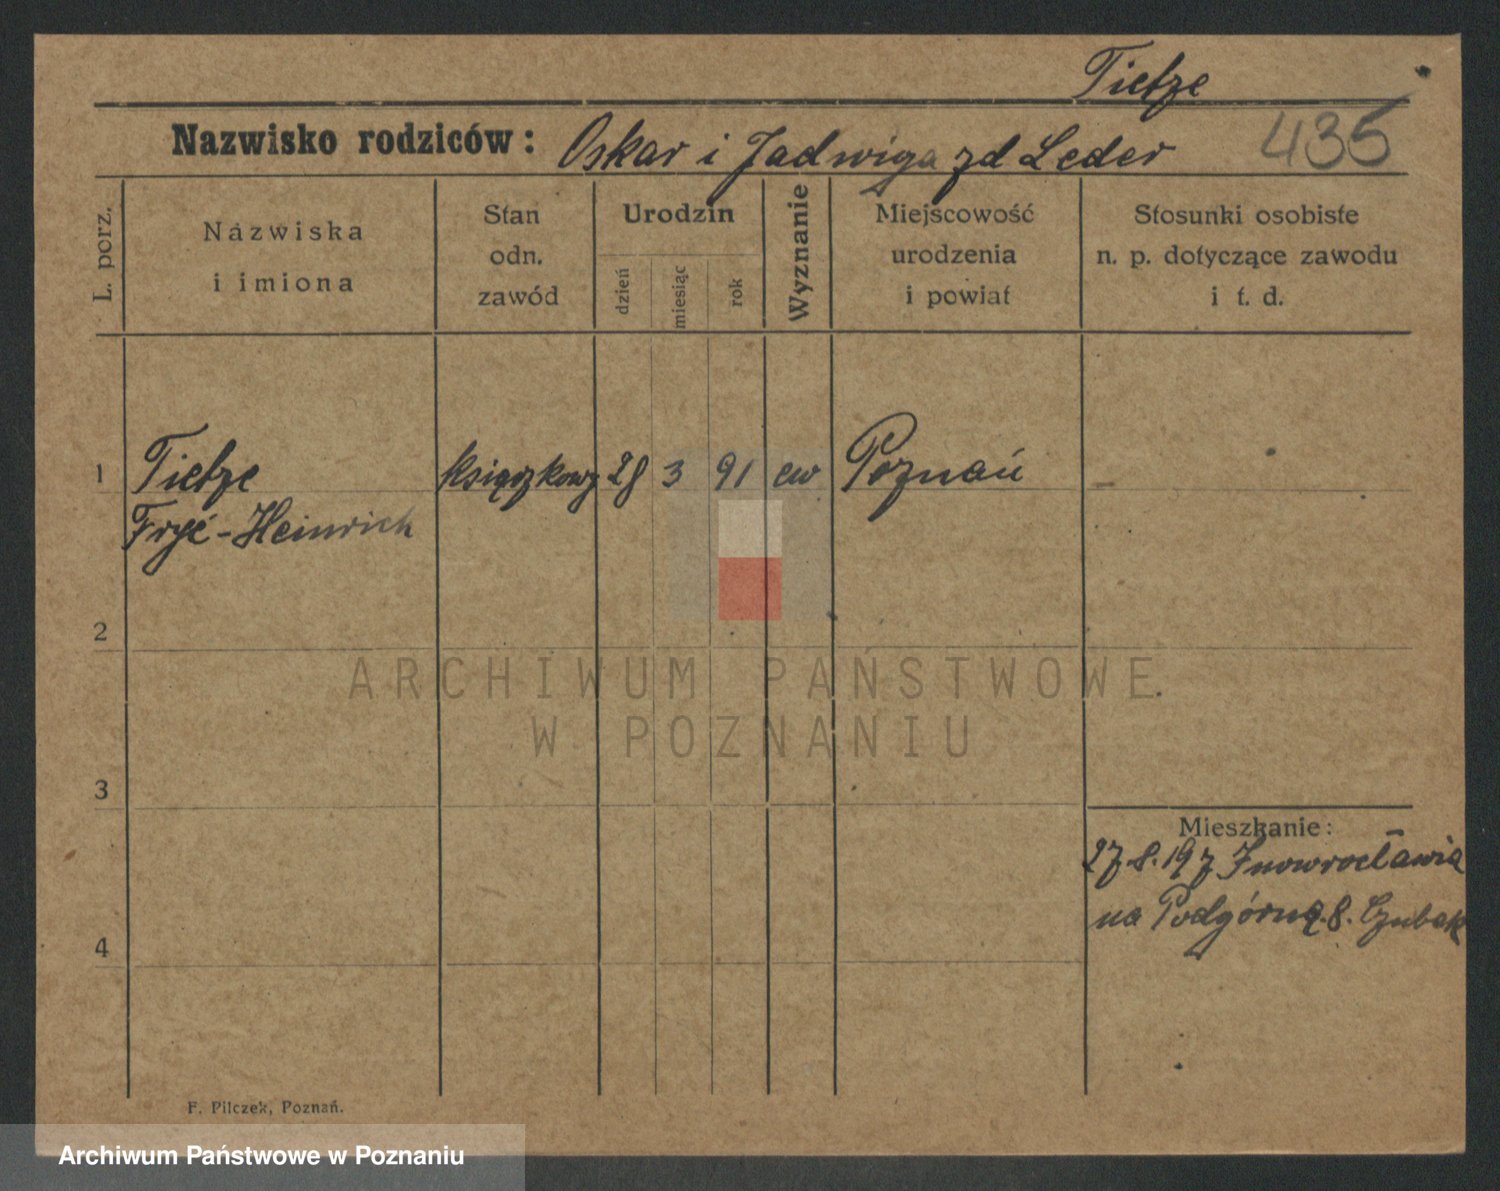 Tietze
Nazwisko rodziców: Oskar i Jadwiga zd Leder 435
L. porz.
Nazwiska
i imiona
Stan
odn.
zawód
Urodzin
dzień
miesiąc
rok
Wyznanie
Miejscowość
urodzenia
i powiat
Stosunki osobiste
n. p. dotyczące zawodu
i t. d.
1 Tietze książkowy 28 3 91 ew Poznań
-Heinrich
2
ARCHIWUM PAŃSTWOWE
W POZNANIU
3
Mieszkanie:
27.8.19 z Inowrocławia
na Podgórną 8. Czubak
4
F. Pilczek, Poznań.
Archiwum Państwowe w Poznaniu